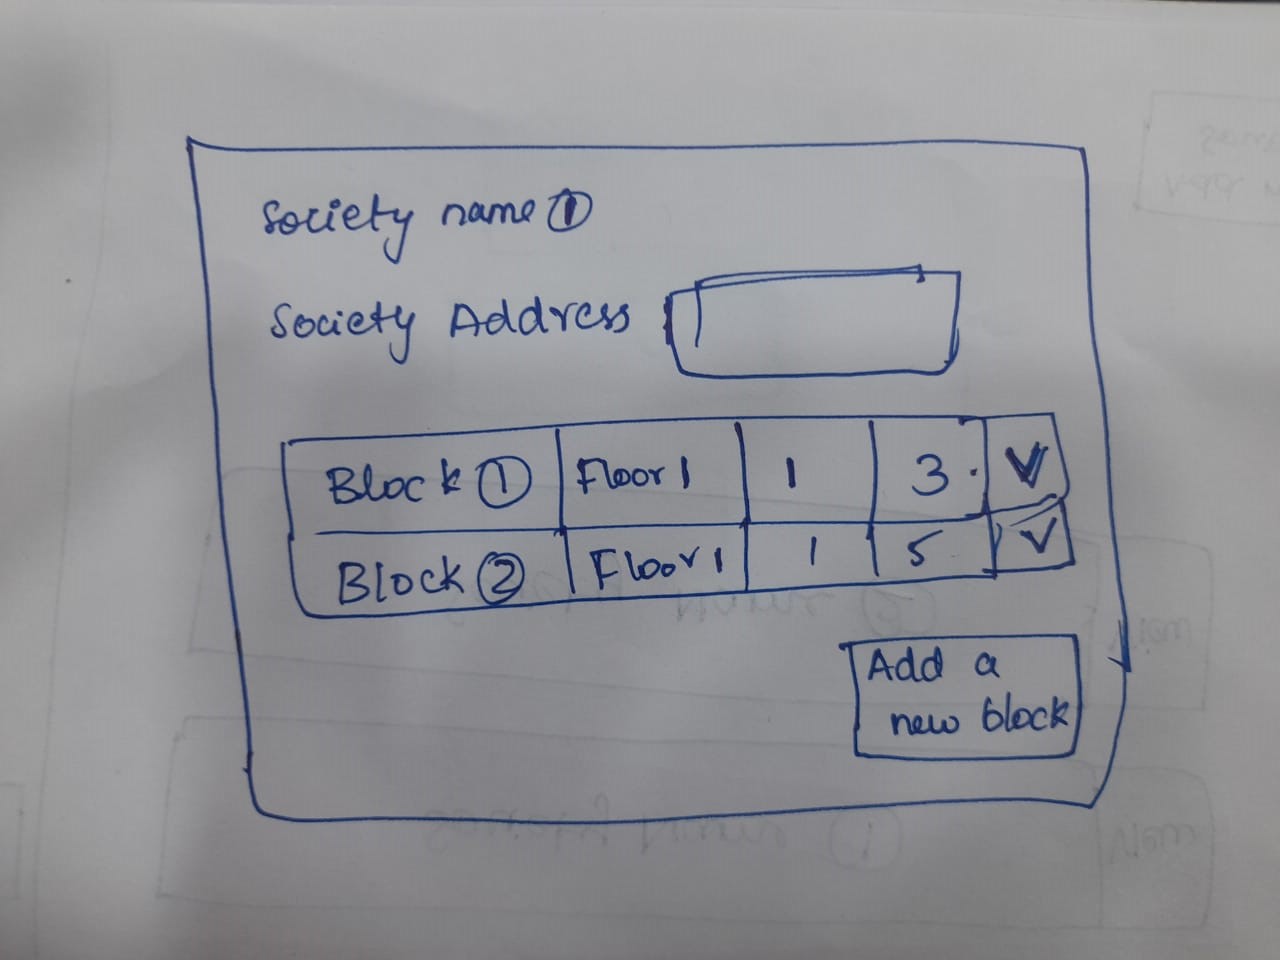 Society name ①
Society Address
Block ① Floor 1 1 3
Block ② Floor 1 1 5
Add a
new block